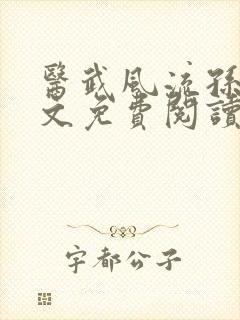 醫武風流孫
文免費閱讀
宇都公子